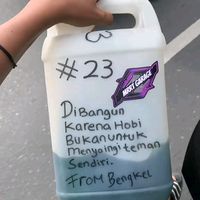 3
#23
DiBangun
Karena Hobi
Bukan untuk
Menyaingi teman
Sendiri.
FROM Bengkel